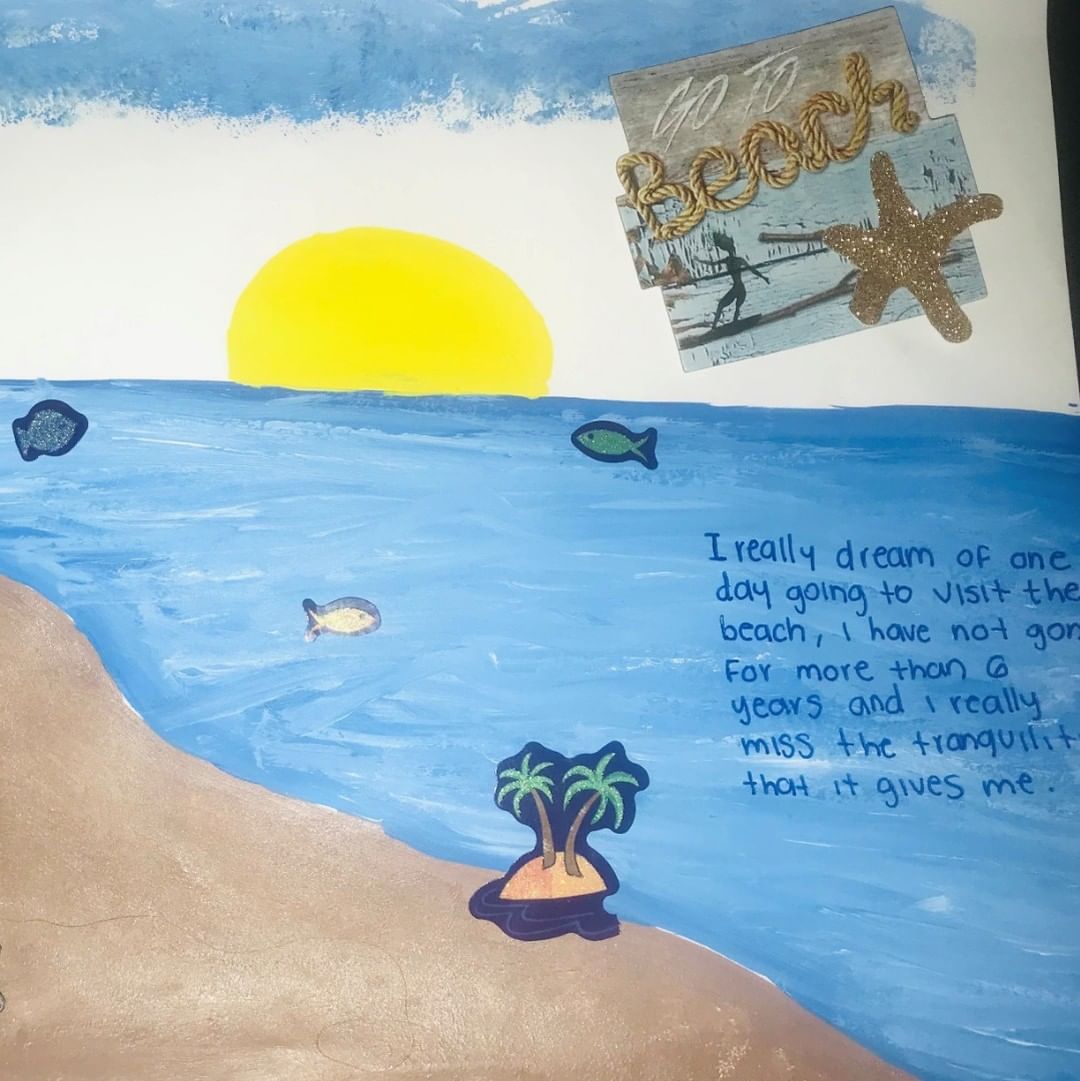 GO TO
Beach
I really dream of one
day going to visit the
beach, I have not gon
For more than 6
years and I really
miss the tranquilit
that it gives me.